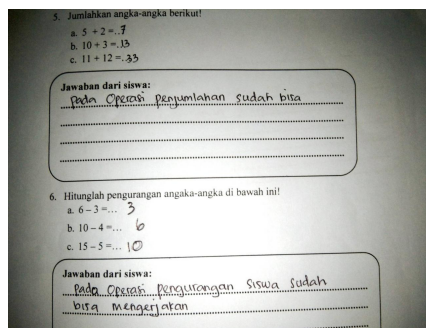 5. Jumlahkan angka-angka berikut!
a. 5 + 2 =..7
b. 10 + 3 =.13
c. 11 + 12 =.33
Jawaban dari siswa:
Pada Operasi penjumlahan sudah bisa
6. Hitunglah pengurangan angaka-angka di bawah ini!
a. 6 – 3 =... 3
b. 10 – 4 =... 6
c. 15 – 5 =... 10
Jawaban dari siswa:
Pada Operasi pengurangan siswa sudah
bisa mengerjakan